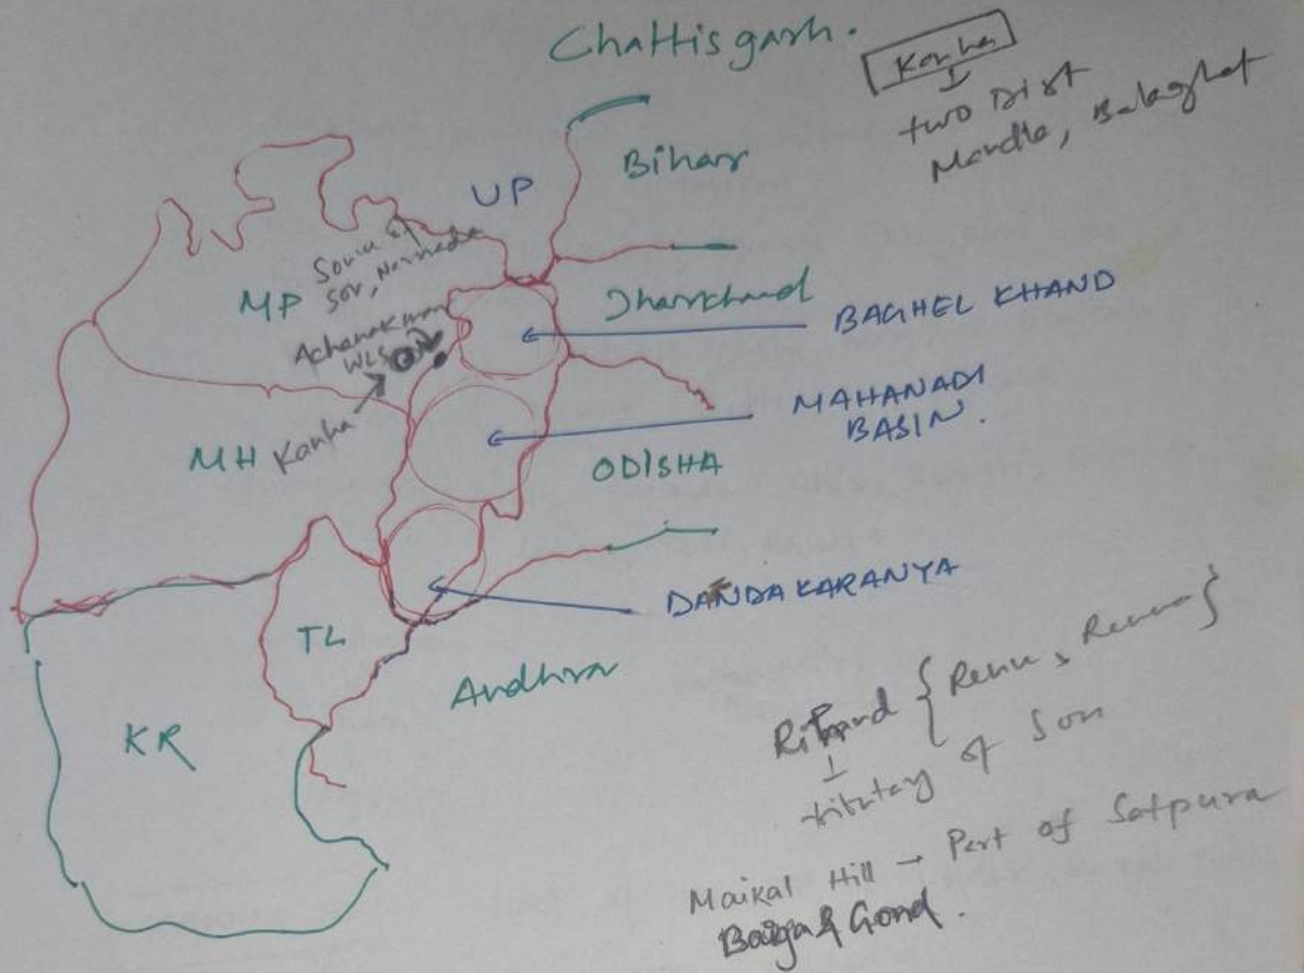 Chattisgarh.
Kanha
two Dist
Mandla, Balaghat
Bihar
UP
Source of
Son, Narmada
MP
Jharkhand
BAGHEL KHAND
Achanakmar
WLS
MAHANADI
BASIN.
Kanha
MH
ODISHA
DANDAKARANYA
TL
Andhra
KR
Rihand { Renu, Renuka }
tributary of Son
Maikal Hill → Part of Satpura
Baiga & Gond.